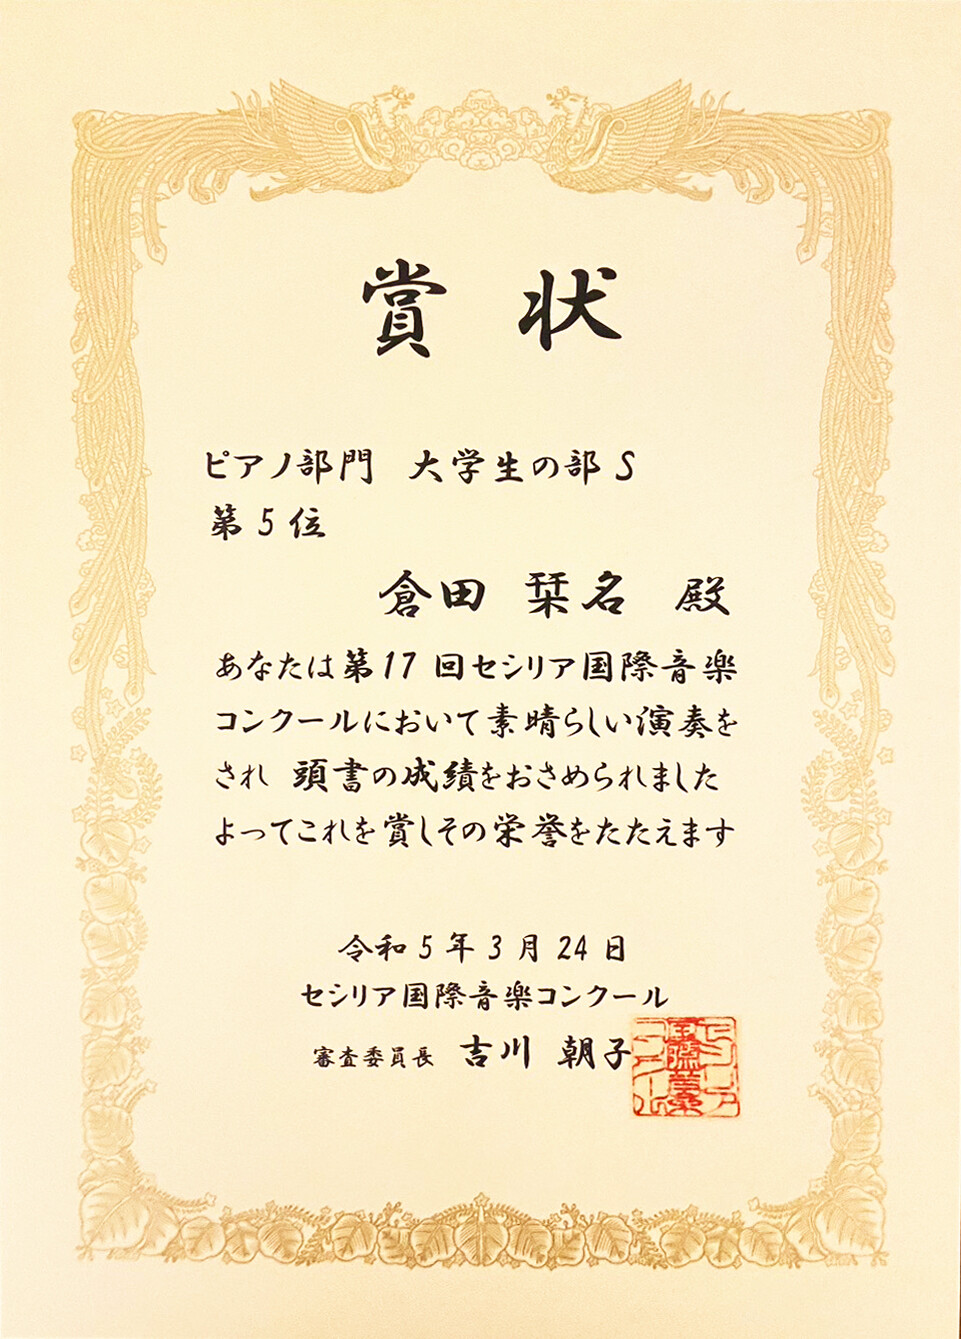 賞状
ピアノ部門 大学生の部 S
第 5 位
倉田 栞名 殿
あなたは第17 回セシリア国際音楽
コンクールにおいて素晴らしい演奏を
され 頭書の成績をおさめられました
よってこれを賞しその栄誉をたたえます
令和 5 年 3 月 24 日
セシリア国際音楽コンクール
審査委員長 吉川 朝子
セシリア国際音楽コンクール